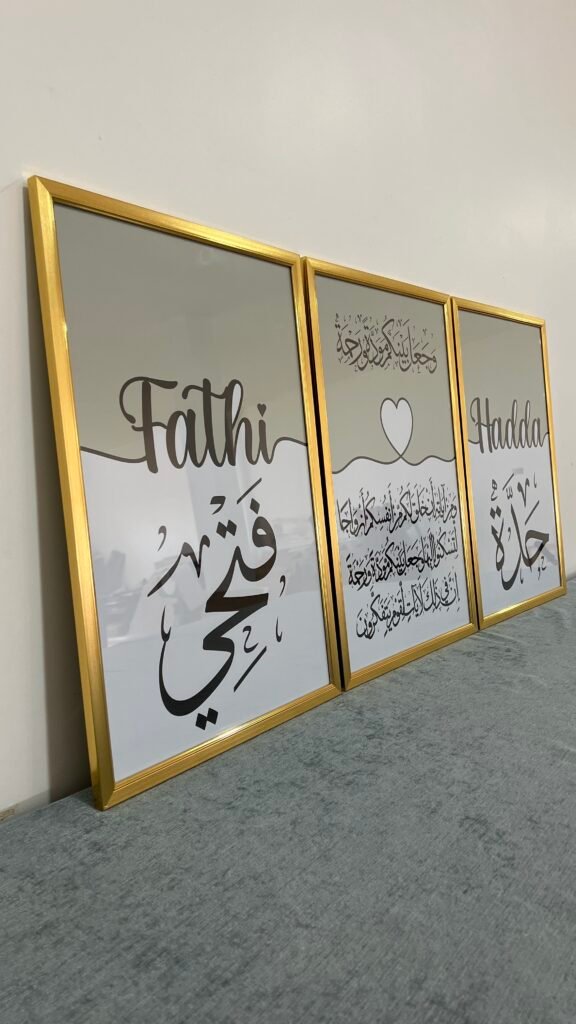 Fathi
فَتْحِي
وَجَعَلَ بَيْنَكُم مَّوَدَّةً وَرَحْمَةً
وَمِنْ آيَاتِهِ أَنْ خَلَقَ لَكُم مِّنْ أَنفُسِكُمْ أَزْوَاجًا
لِّتَسْكُنُوا إِلَيْهَا وَجَعَلَ بَيْنَكُم مَّوَدَّةً وَرَحْمَةً
إِنَّ فِي ذَٰلِكَ لَآيَاتٍ لِّقَوْمٍ يَتَفَكَّرُونَ
Hadda
حَدَّة